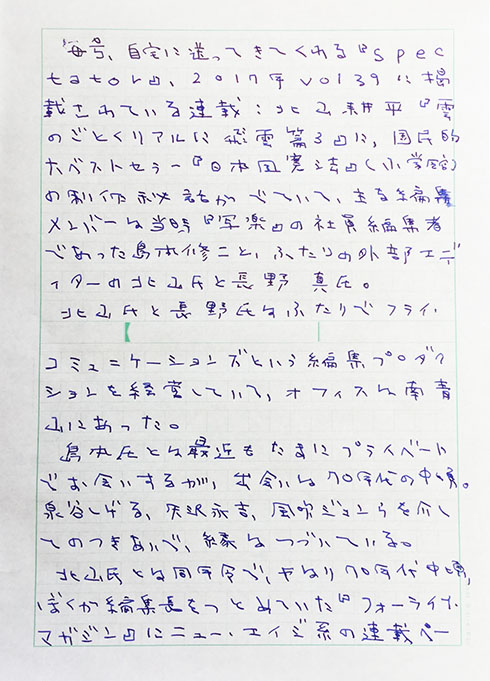 毎号、自宅に送ってきてくれる『spec
tator』、2017年vol39に掲
載されている連載：北山耕平『雲
のごとくリアルに 飛雲篇3』に、国民的
大ベストセラー『日本国憲法』(小学館)
の制作秘話がでていて、主な編集
メンバーは当時『写楽』の社員編集者
であった島本脩二と、ふたりの外部エデ
ィターの北山氏と長野 真氏。
北山氏と長野氏はふたりでフライ・
コミュニケーションズという編集プロダク
ションを経営していて、オフィスは南青
山にあった。
島本氏とは最近もたまにプライベート
でお会いするが、出会いは70年代の中頃。
泉谷しげる、矢沢永吉、風吹ジュンらを介し
てのつきあいで、縁はつづいている。
北山氏とは同年令で、やはり70年代中頃、
ぼくが編集長をつとめていた『フォーライフ・
マガジン』にニュー・エイジ系の連載ペー